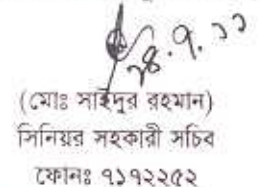 ২৪.৭.১১
(মোঃ সাইদুর রহমান)
সিনিয়র সহকারী সচিব
ফোনঃ ৭১৭২২৫২